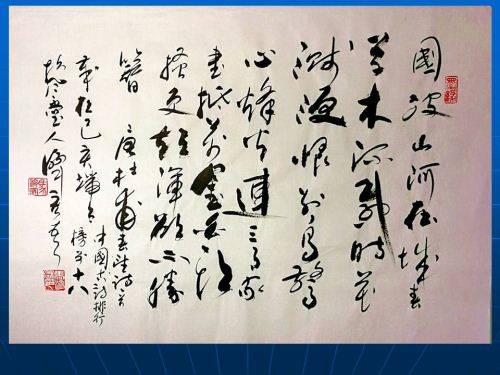 國破山河在城春
草木深感時花
濺淚恨別鳥驚
心烽火連三月家
書抵萬金白頭
搔更短渾欲不勝
簪 唐杜甫春望詩
中國古詩排行
榜第十八
己亥